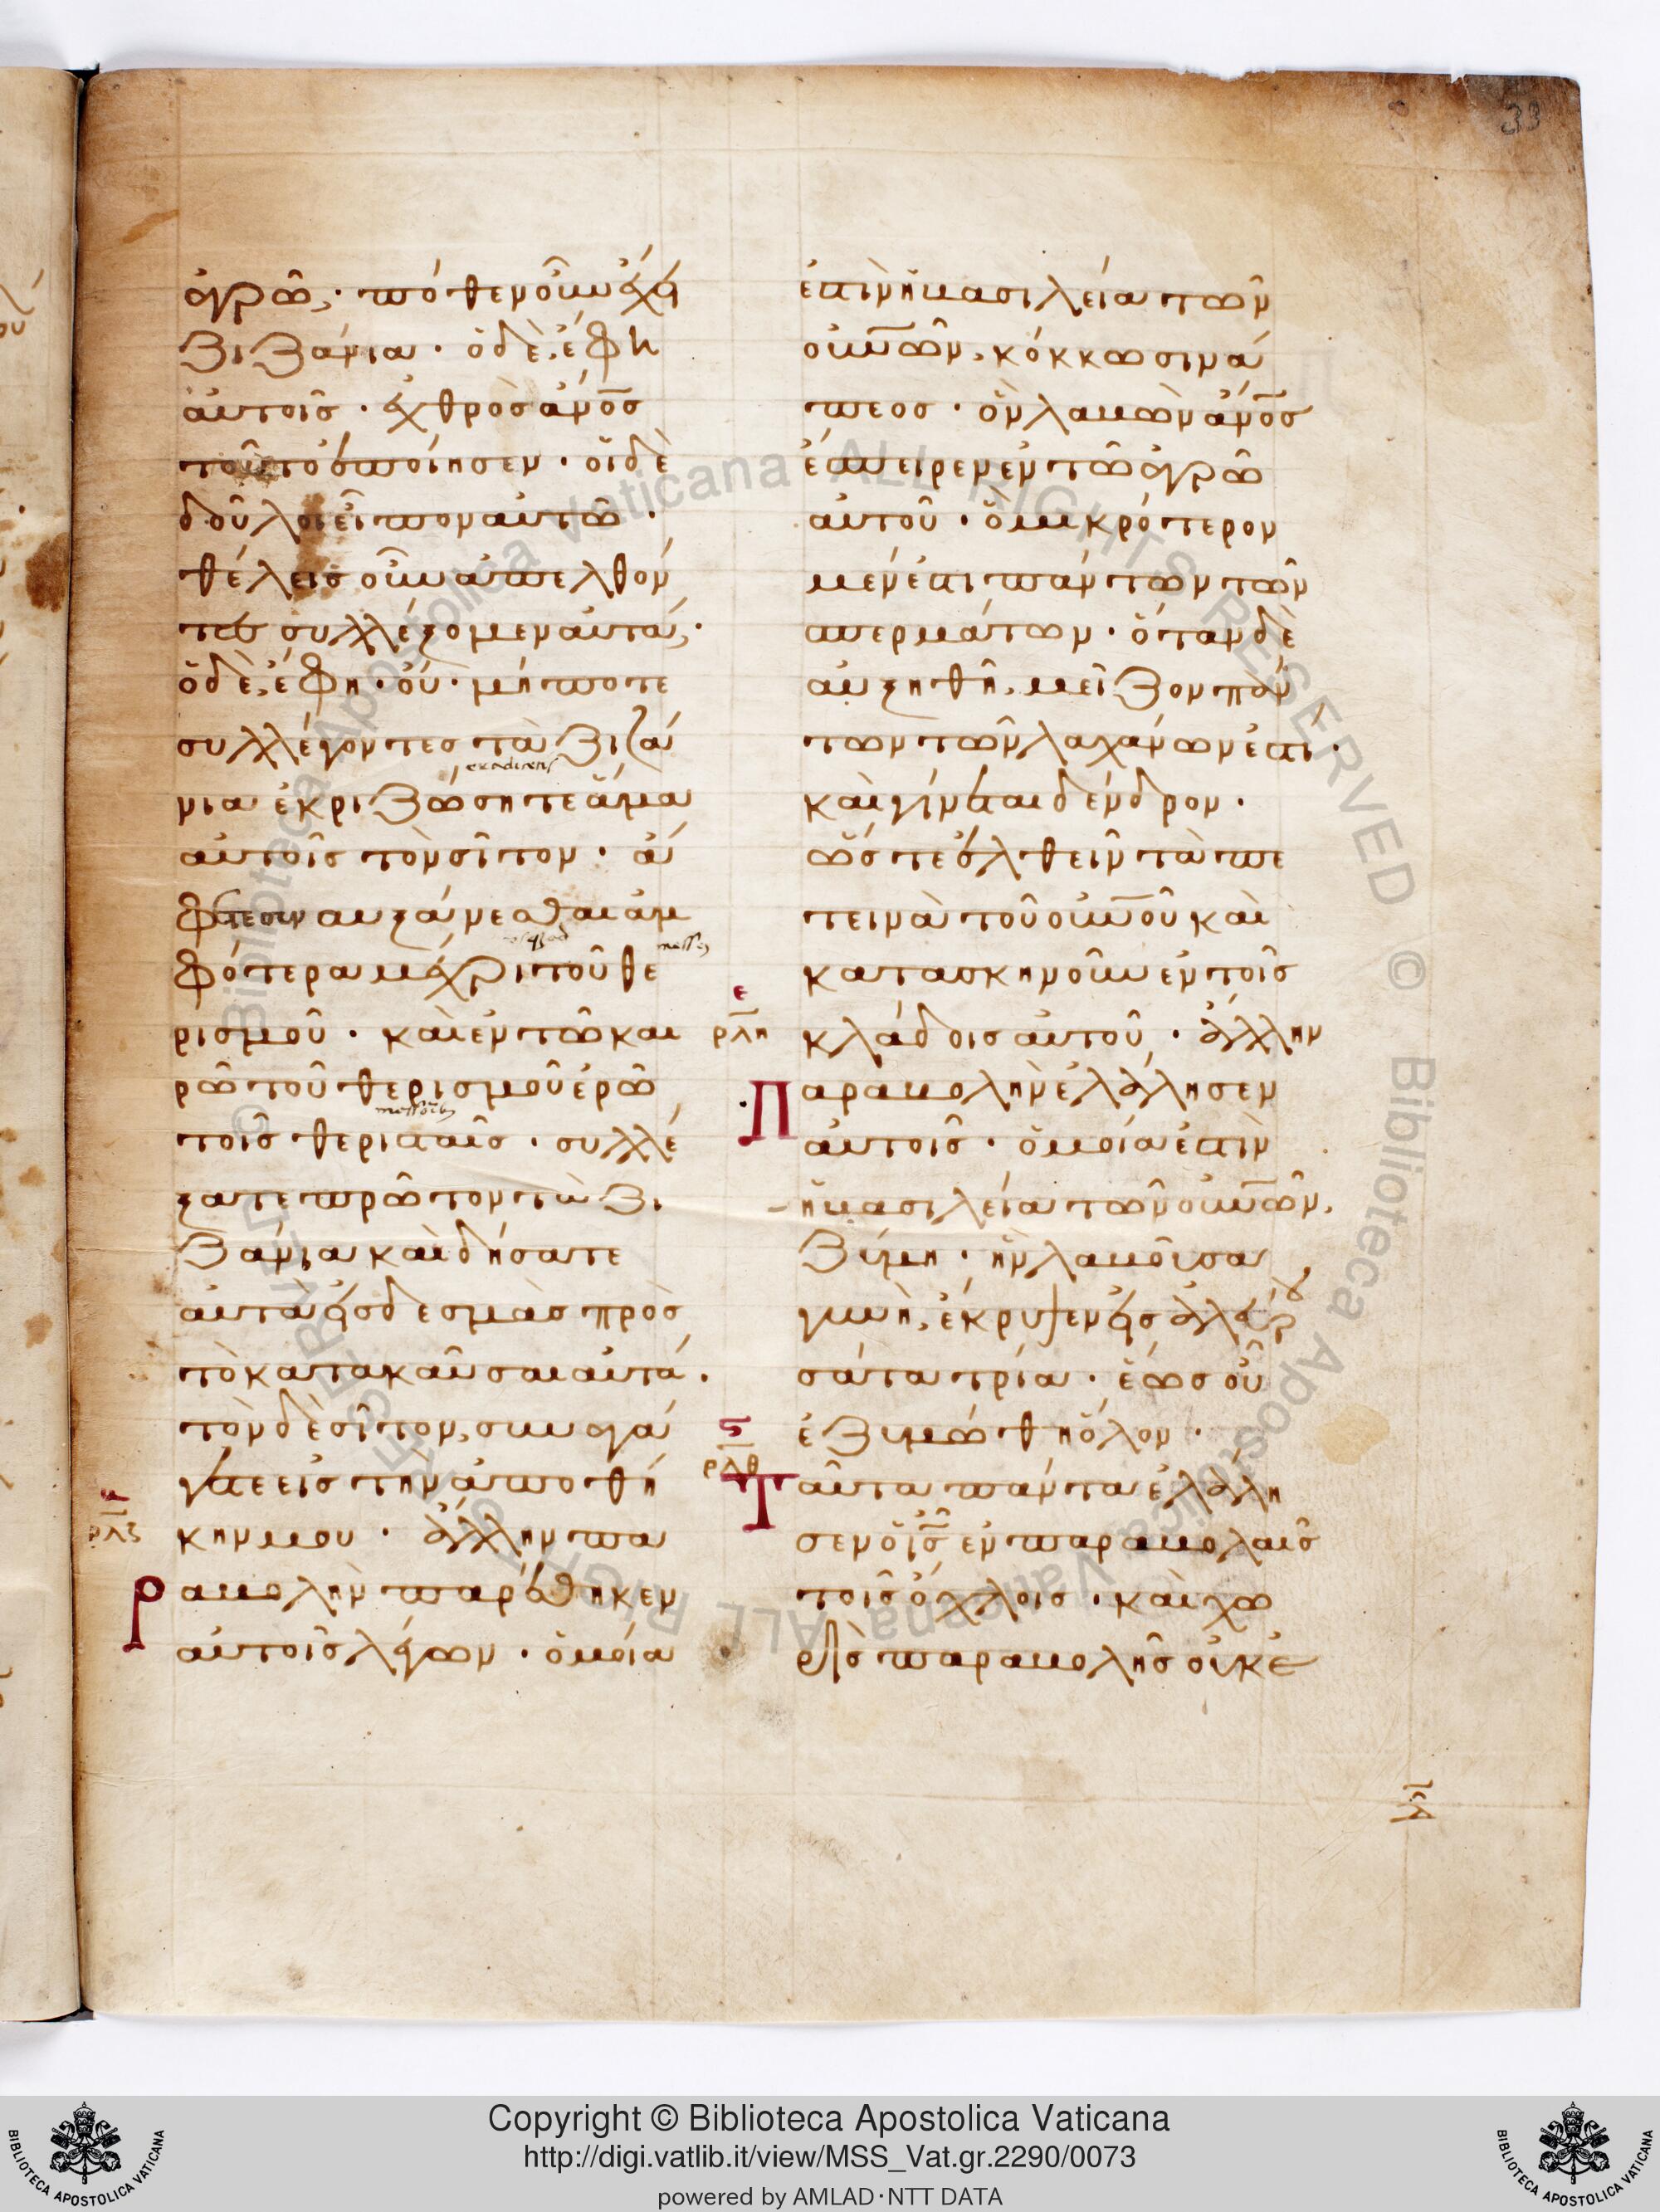 33
ἀγρῶ, · πόθεν οὖν ἔχει
ζιζάνια · ὁ δὲ, ἔφη
αὐτοῖς · ἐχθρὸς ἄνο̅ς
τοῦτο ἐποίησεν · οἱ δὲ
δοῦλοι εἶπον αὐτῶ ·
θέλεις οὖν ἀπελθόν
τες συλλέξομεν αὐτά, ·
ὁ δὲ, ἔφη · οὐ · μήποτε
συλλέγοντες τὰ ζιζά
νια ἐκριζώσητε ἅμα
αὐτοῖς τὸν σῖτον · ἄ
φετε συναυξάνεσθαι ἀμ
φότερα μέχρι τοῦ θε
ρισμοῦ · καὶ ἐν τῶ και
ρῶ τοῦ θερισμοῦ ἐρῶ
τοῖς θερισταῖς · συλλέ
ξατε πρῶτον τὰ ζι
ζάνια καὶ δήσατε
αὐτὰ εἰς δεσμὰς πρὸς
τὸ κατακαῦσαι αὐτά.
τὸν δὲ σῖτον, συναγά
γετε εἰς τὴν ἀποθή
ρλζ κην μου · ἄλλην πα
ραβολὴν παρέθηκεν
αὐτοῖς λέγων · ὁμοία
ἐστὶν ἡ βασιλεία τῶν
οὐν̅ῶν, κόκκω σινά
πεος · ὃν λαβὼν ἄνο̅ς
ἔσπειρεν ἐν τῶ ἀγρῶ
αὐτοῦ · ὃ μικρότερον
μέν ἐστι πάντων τῶν
σπερμάτων · ὅταν δὲ
αὐξηθῆ, μεῖζον πάν
των τῶν λαχάνων ἐστί ·
καὶ γίνεται δένδρον ·
ὥστε ἐλθεῖν τὰ πε
τεινὰ τοῦ οὐν̅οῦ καὶ
κατασκηνοῦν ἐν τοῖς
ε
ρλη κλάδοις αὐτοῦ · ἄλλην
παραβολὴν ἐλάλησεν
αὐτοῖς · ὁμοία ἐστὶν
ἡ βασιλεία τῶν οὐν̅ῶν,
ζύμη · ἣν λαβοῦσα
γυνὴ, ἔκρυψεν εἰς ἀλεύρου
σάτα τρία · ἕως οὗ
ς ἐζυμώθη ὅλον ·
ρλθ
Ταῦτα πάντα ἐλάλη
σεν ὁ ι̅ς̅ ἐν παραβολαῖς
τοῖς ὄχλοις · καὶ χω
ρὶς παραβολῆς οὐκ ἐ
Copyright © Biblioteca Apostolica Vaticana
http://digi.vatlib.it/view/MSS_Vat.gr.2290/0073
powered by AMLAD·NTT DATA
BIBLIOTECA APOSTOLICA VATICANA
BIBLIOTECA APOSTOLICA VATICANA